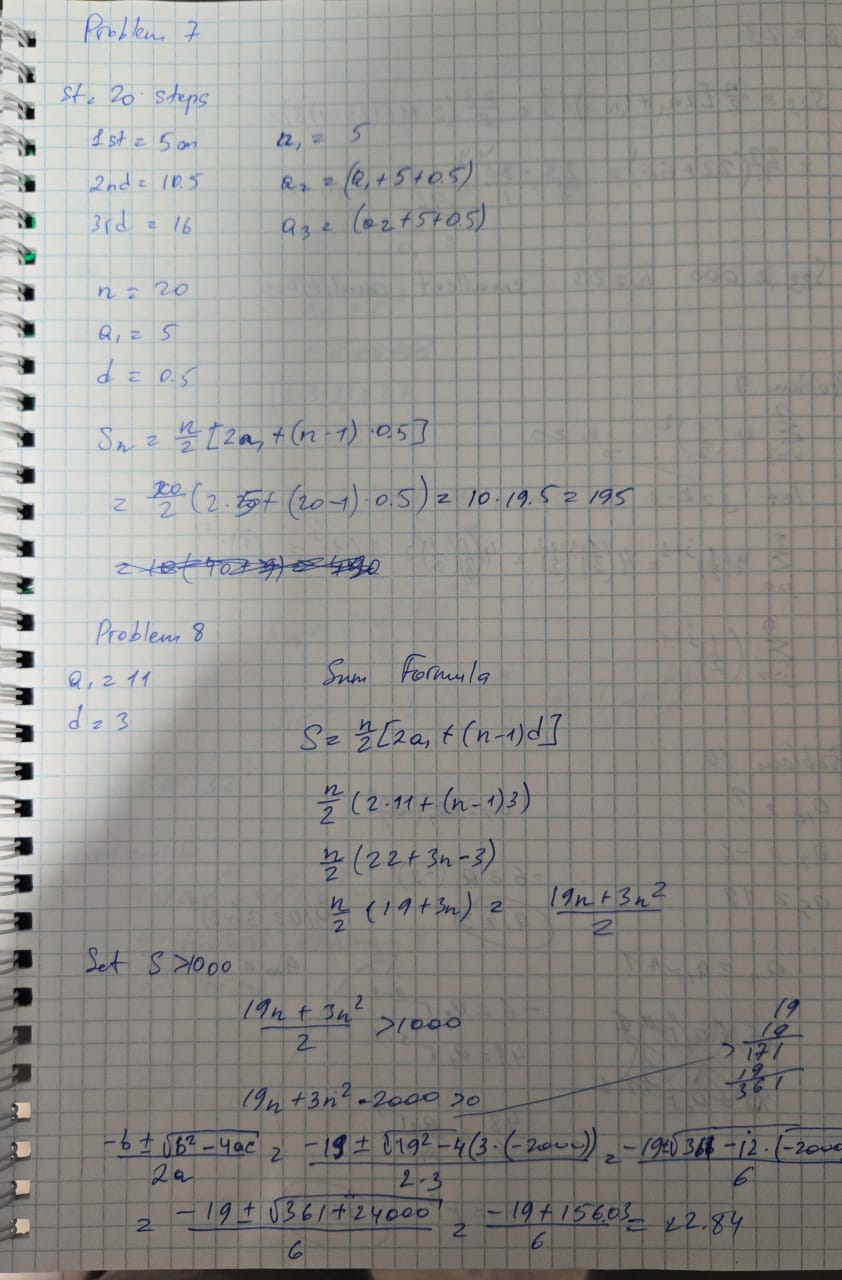 Problem 7
st = 20 steps
1st = 5cm a₁ = 5
2nd = 10.5 a₂ = (a₁ + 5 + 0.5)
3rd = 16 a₃ = (a₂ + 5 + 0.5)
n = 20
a₁ = 5
d = 0.5
Sₙ = n/2 [2a₁ + (n-1) · 0.5]
= 20/2 (2 · 5 + (20-1) · 0.5) = 10 · 19.5 = 195
Problem 8
a₁ = 11 Sum Formula
d = 3
S = n/2 [2a₁ + (n-1)d]
n/2 (2·11 + (n-1)3)
n/2 (22 + 3n - 3)
n/2 (19 + 3n) = (19n + 3n²)/2
Set S > 1000
(19n + 3n²)/2 > 1000
19
19
171
19
361
19n + 3n² - 2000 > 0
(-b ± √(b² - 4ac))/2a = (-19 ± √(19² - 4(3·(-2000))))/(2·3) = (-19 ± √(361 - 12·(-2000
6
= (-19 ± √(361 + 24000))/6 = (-19 + 156.03)/6 = 22.84